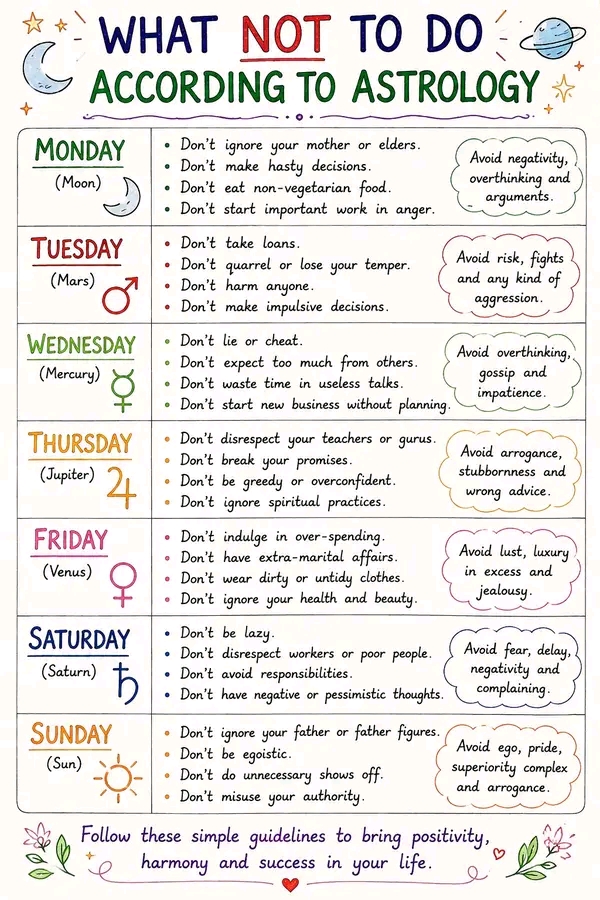 WHAT NOT TO DO
ACCORDING TO ASTROLOGY
MONDAY
(Moon)
• Don't ignore your mother or elders.
• Don't make hasty decisions.
• Don't eat non-vegetarian food.
• Don't start important work in anger.
Avoid negativity,
overthinking and
arguments.
TUESDAY
(Mars)
• Don't take loans.
• Don't quarrel or lose your temper.
• Don't harm anyone.
• Don't make impulsive decisions.
Avoid risk, fights
and any kind of
aggression.
WEDNESDAY
(Mercury)
• Don't lie or cheat.
• Don't expect too much from others.
• Don't waste time in useless talks.
• Don't start new business without planning.
Avoid overthinking,
gossip and
impatience.
THURSDAY
(Jupiter)
• Don't disrespect your teachers or gurus.
• Don't break your promises.
• Don't be greedy or overconfident.
• Don't ignore spiritual practices.
Avoid arrogance,
stubbornness and
wrong advice.
FRIDAY
(Venus)
• Don't indulge in over-spending.
• Don't have extra-marital affairs.
• Don't wear dirty or untidy clothes.
• Don't ignore your health and beauty.
Avoid lust, luxury
in excess and
jealousy.
SATURDAY
(Saturn)
• Don't be lazy.
• Don't disrespect workers or poor people.
• Don't avoid responsibilities.
• Don't have negative or pessimistic thoughts.
Avoid fear, delay,
negativity and
complaining.
SUNDAY
(Sun)
• Don't ignore your father or father figures.
• Don't be egoistic.
• Don't do unnecessary shows off.
• Don't misuse your authority.
Avoid ego, pride,
superiority complex
and arrogance.
Follow these simple guidelines to bring positivity,
harmony and success in your life.